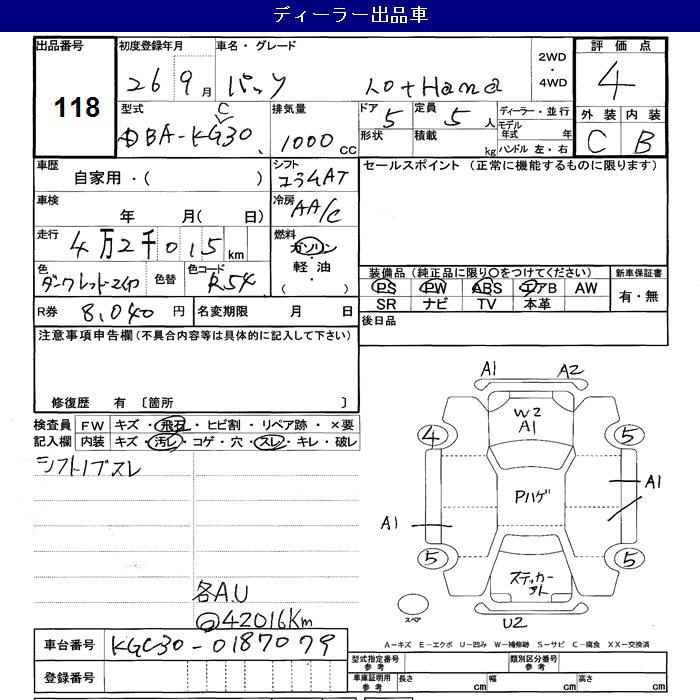 ディーラー出品車
出品番号
118
初度登録年月
26 9月
車名・グレード
パッソ
+Hana
2WD
・
4WD
評価点
4
外装 内装
C B
型式
DBA-KG30
C
排気量
1000 CC
ドア
5
定員
5人
形状
積載
kg
ディーラー・並行
モデル年式 年
ハンドル 左・右
車歴
自家用・( )
シフト
コラムAT
セールスポイント (正常に機能するものに限ります)
車検
年 月( 日)
冷房
AA/C
走行
4万2千015km
燃料
ガソリン
・
軽油
・
( )
色
色替
色コード
R54
装備品(純正品に限り○をつけてください)
PS PW ABS エアB AW
SR ナビ TV 本革
新車保証書
有・無
R券 8,040円
名変期限 月 日
後日品
注意事項申告欄(不具合内容等は具体的に記入して下さい)
修復歴 有 〔箇所 〕
検査員
記入欄
FW キズ・飛石・ヒビ割・リペア跡・×要
内装 キズ・汚レ・コゲ・穴・スレ・キレ・破レ
シフトノブスレ
各A.U
42016Km
A1 A2
W2
A1
4 5
Pハゲ
A1
A1
5 5
ステッカー
スペア
U2
A-キズ E-エクボ U-凹み W-補修跡 S-サビ C-腐食 XX-交換済
車台番号 KGC30-0187079
登録番号
型式指定番号
参考
類別区分番号
参考
車庫証明用
参考
長さ cm 幅 cm 高さ cm